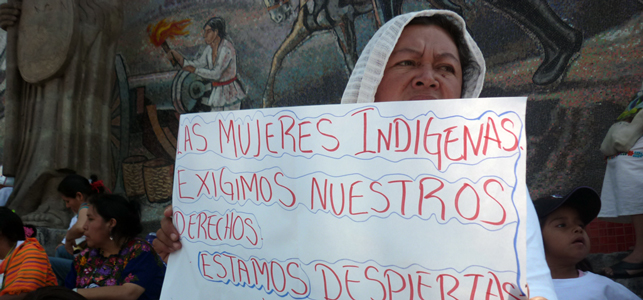 LAS MUJERES INDIGENAS.
EXIGIMOS NUESTROS
DERECHOS.
ESTAMOS DESPIERTAS